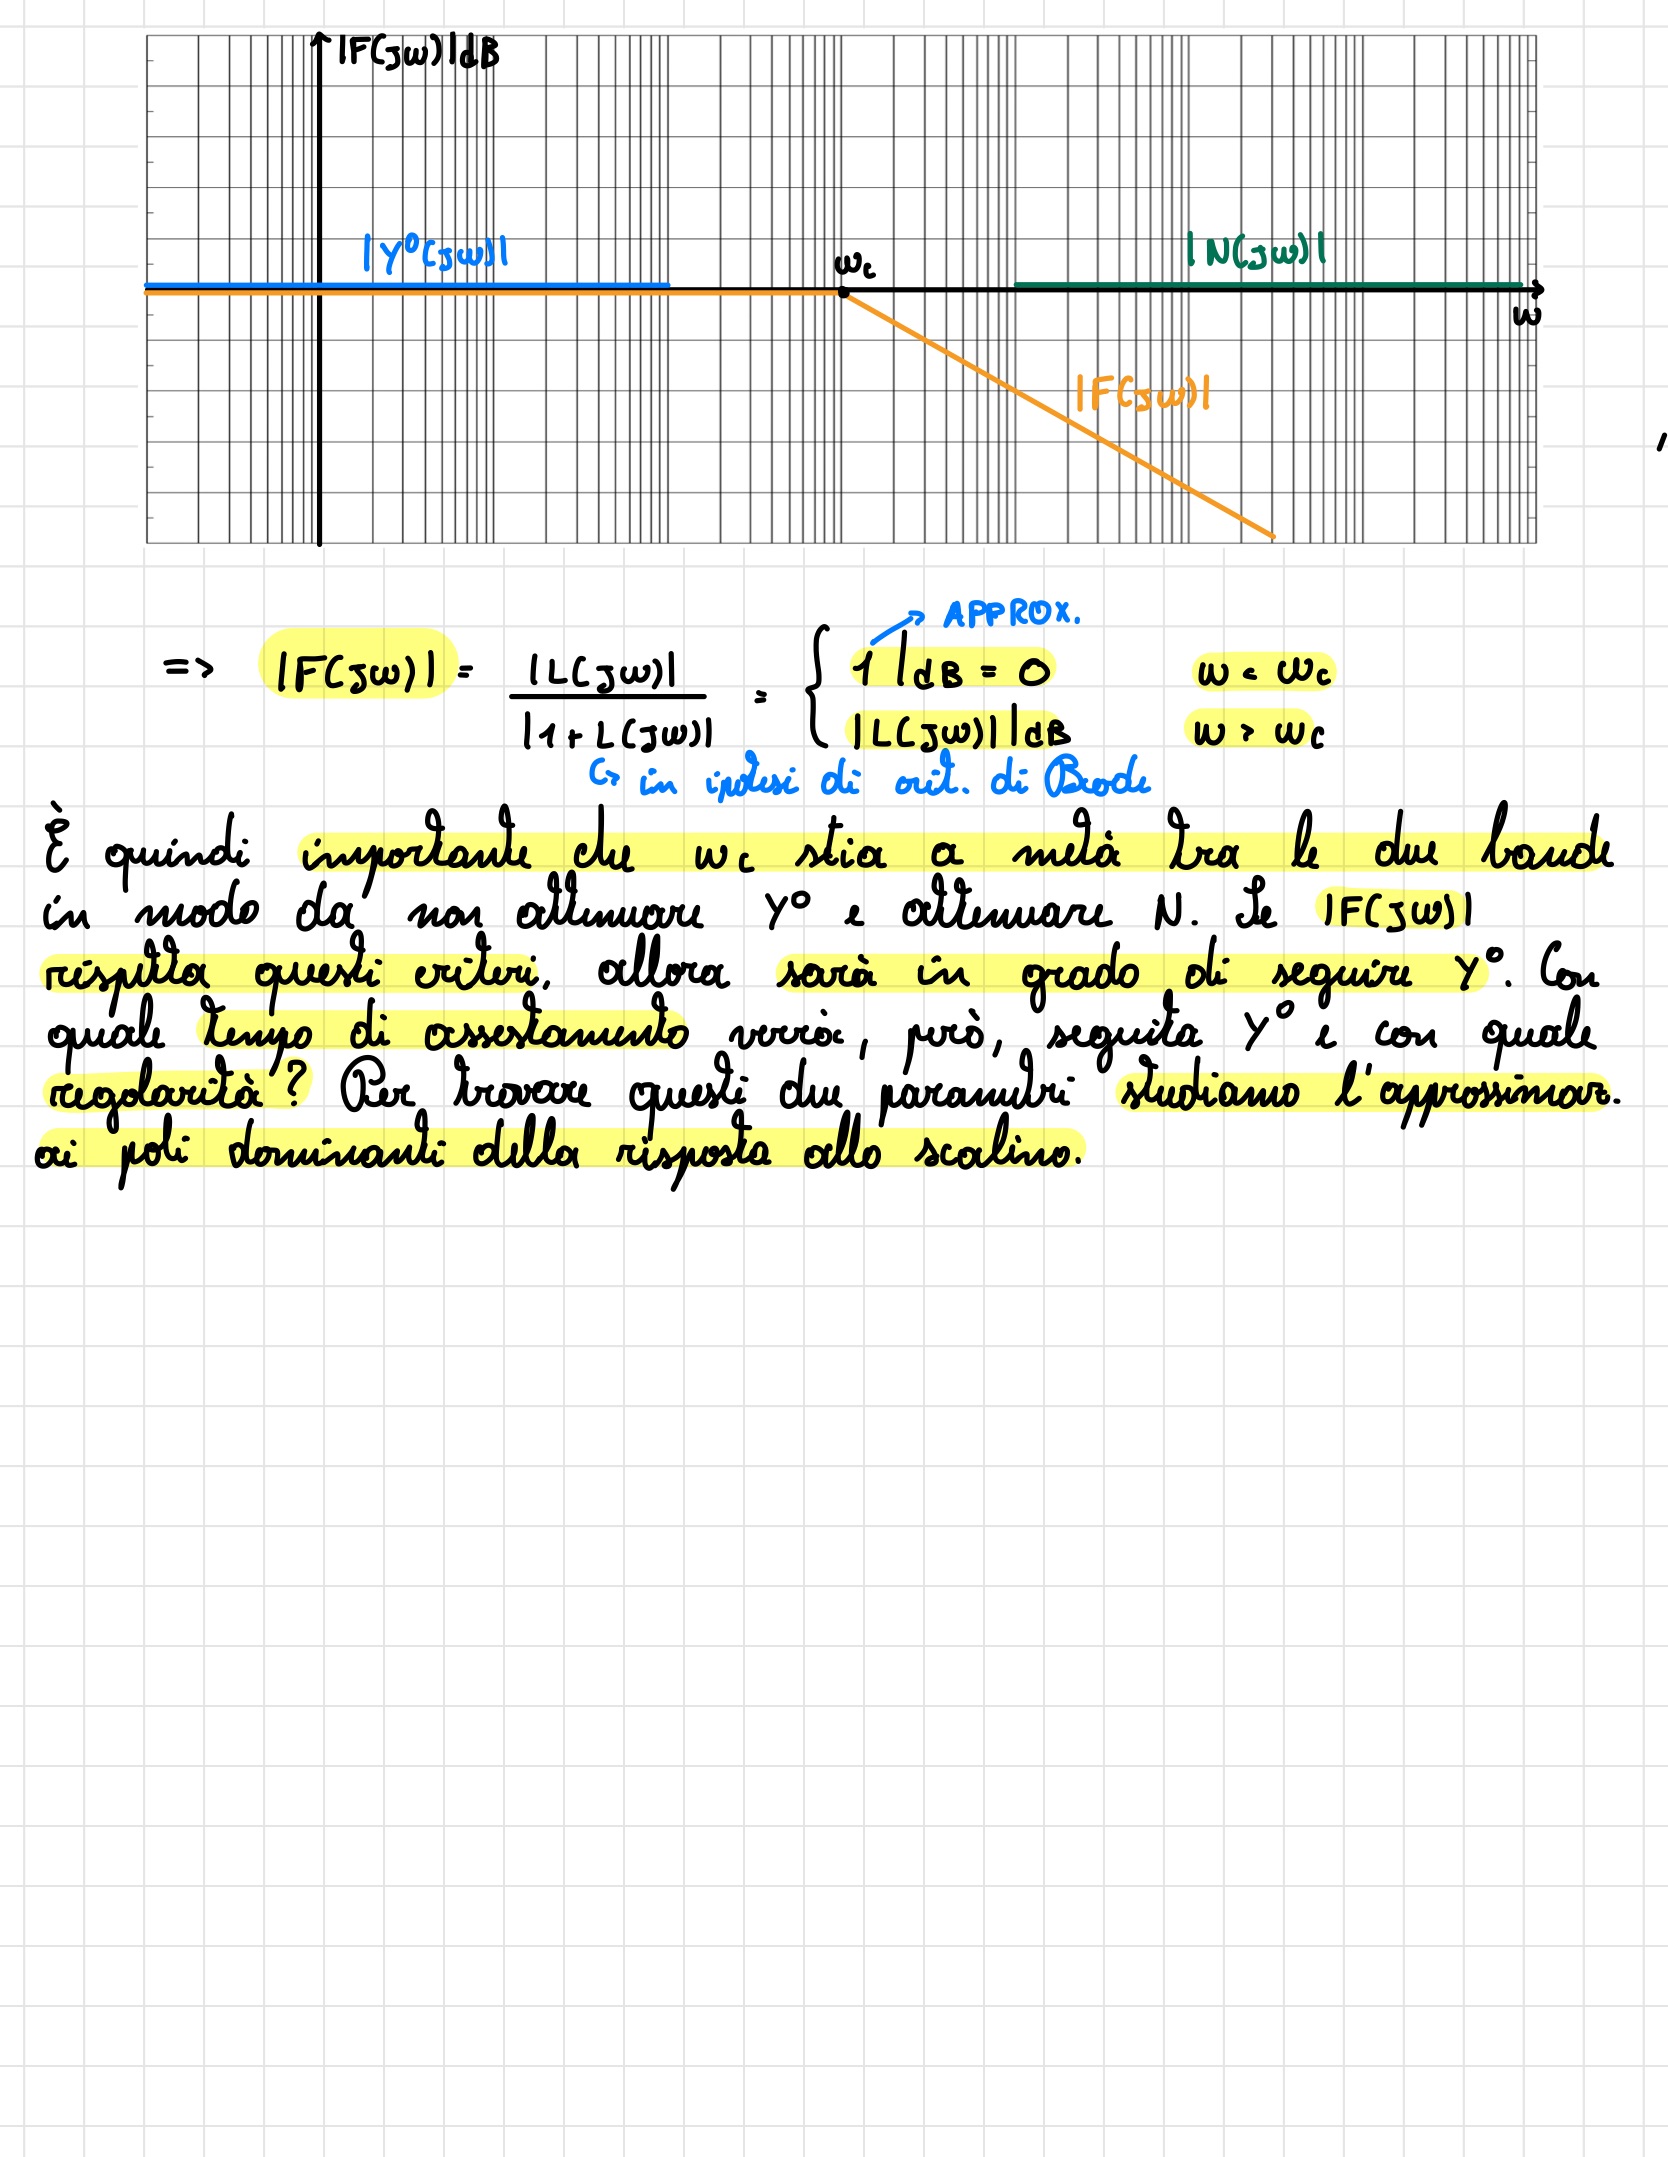 |F(jω)|dB
|Y°(jω)|
ωc
|N(jω)|
ω
|F(jω)|
→ APPROX.
=> |F(jω)| = |L(jω)| / |1+L(jω)| = { 1|dB = 0 ω < ωc
|L(jω)||dB ω > ωc
↳ in ipotesi di crit. di Bode
È quindi importante che ωc stia a metà tra le due bande
in modo da non attenuare Y° e attenuare N. Se |F(jω)|
rispetta questi criteri, allora sarà in grado di seguire Y°. Con
quale tempo di assestamento verrà, però, seguita Y° e con quale
regolarità? Per trovare questi due parametri studiamo l'approssimaz.
ai poli dominanti della risposta allo scalino.